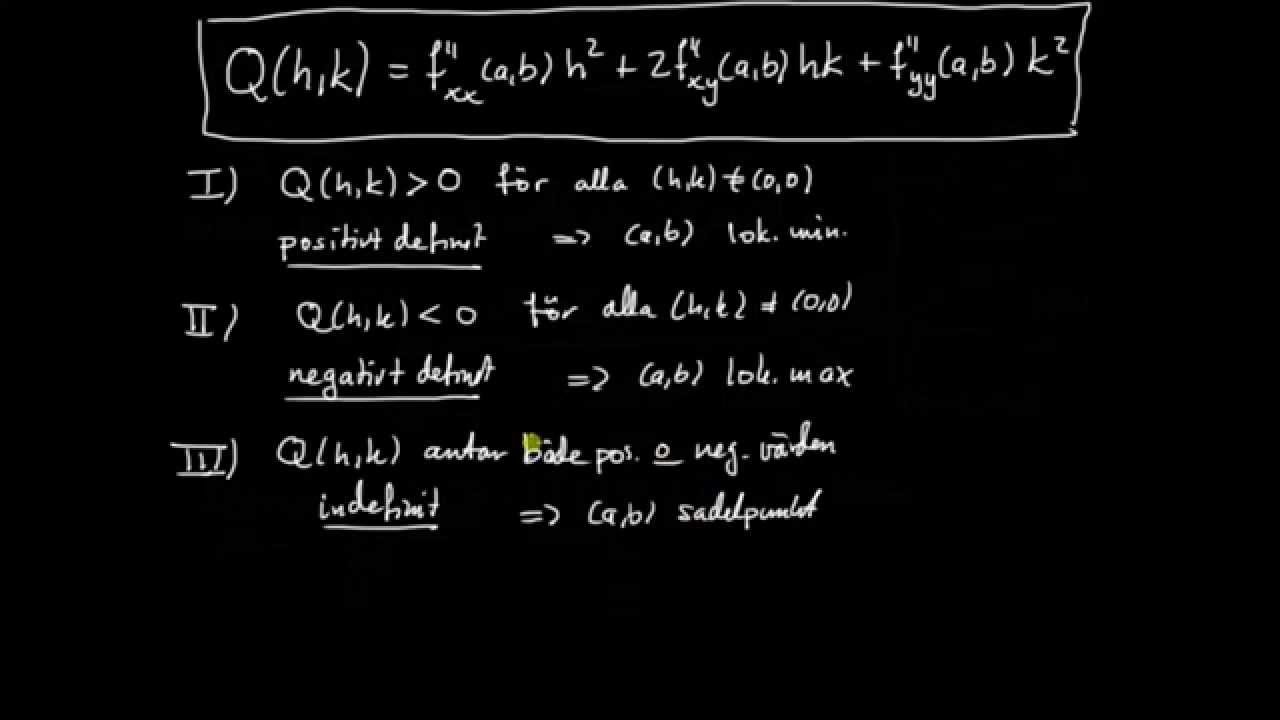 Q(h,k) = f''xx(a,b) h² + 2f''xy(a,b) hk + f''yy(a,b) k²
I) Q(h,k) > 0 för alla (h,k) ≠ (0,0)
positivt definit => (a,b) lok. min.
II) Q(h,k) < 0 för alla (h,k) ≠ (0,0)
negativt definit => (a,b) lok. max
III) Q(h,k) antar både pos. o neg. värden
indefinit => (a,b) sadelpunkt